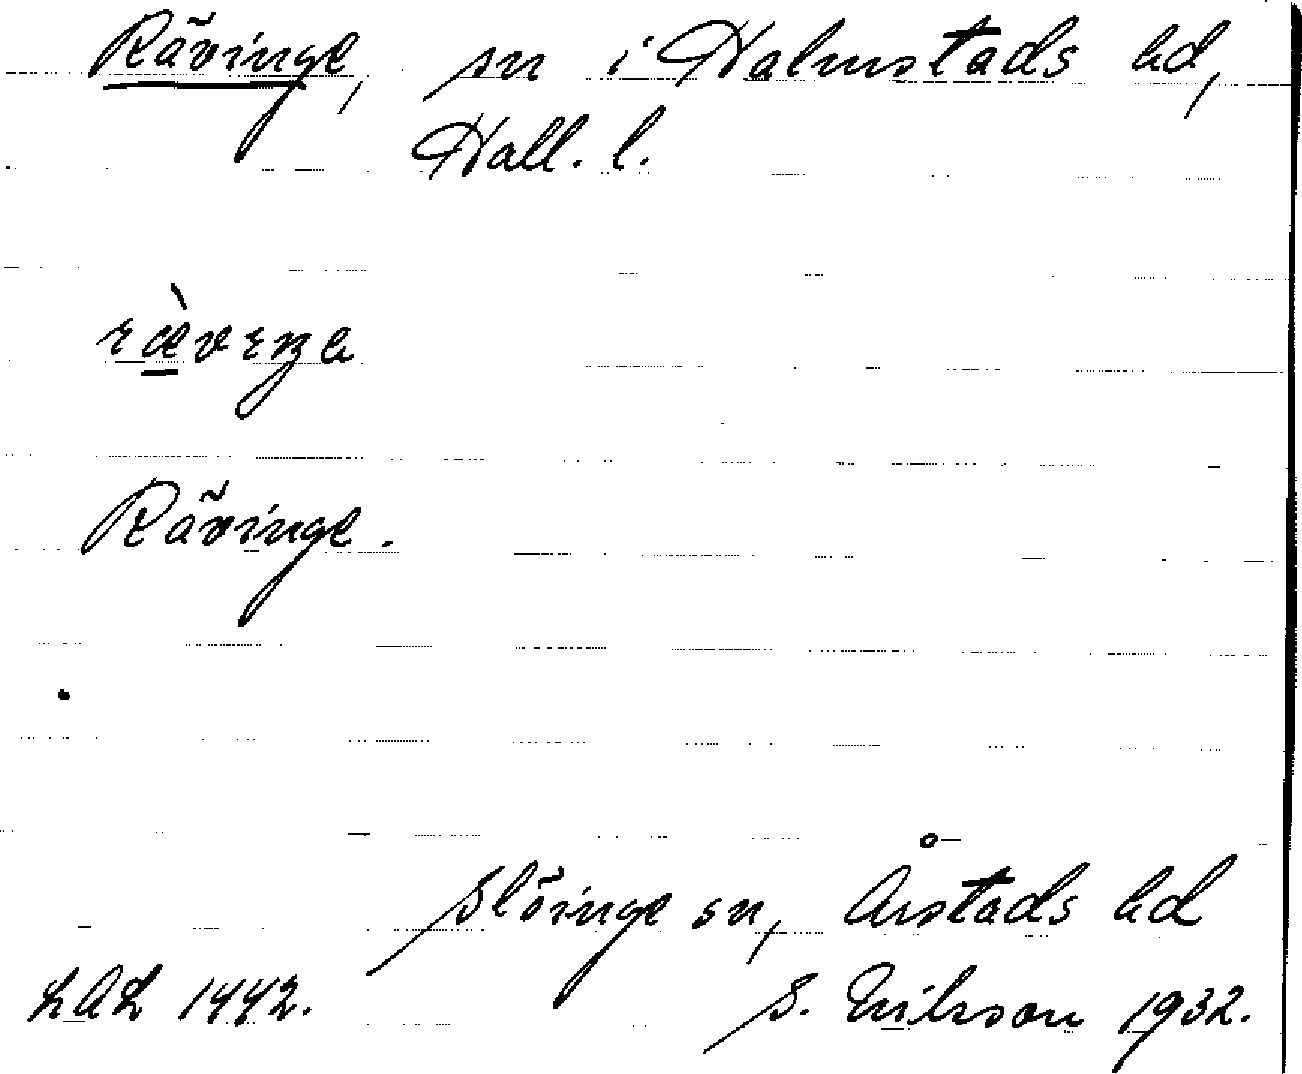 Rävinge, sn i Halmstads hd,
Hall. l.
Rävinge.
Slöinge sn, Årstads hd
LAL 1442. S. Nilsson 1932.